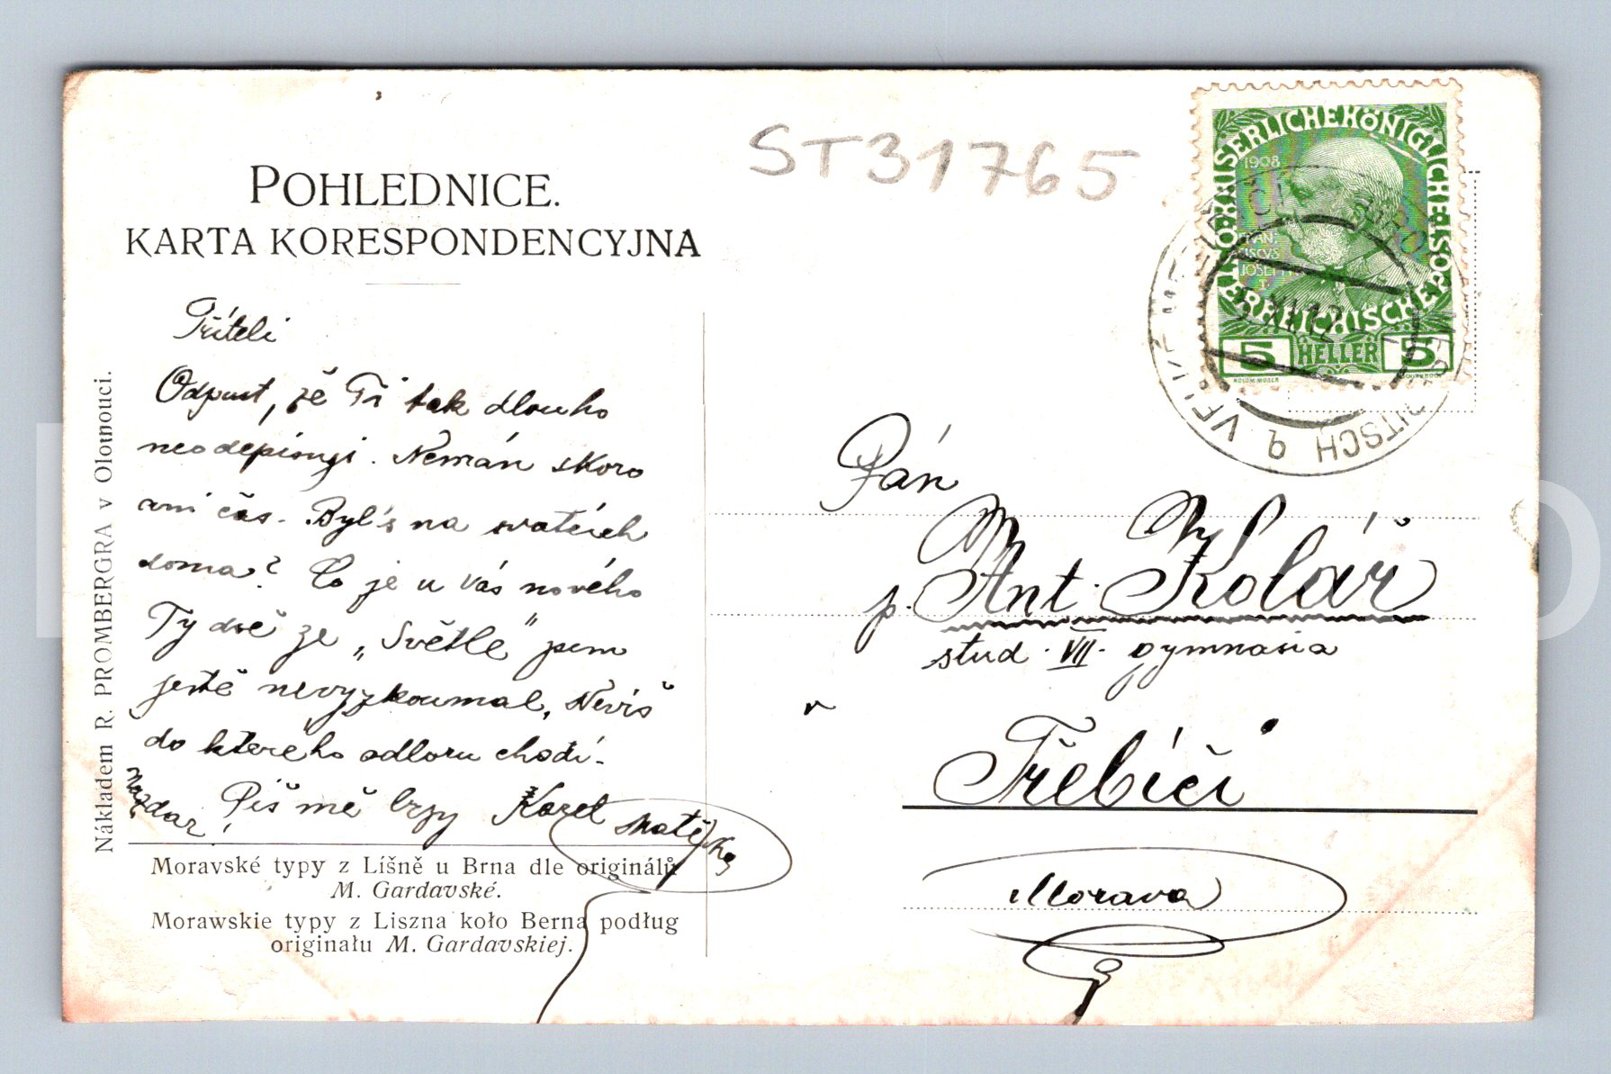 ST31765
POHLEDNICE.
KARTA KORESPONDENCYJNA
Příteli
Odpusť, že Ti tak dlouho
neodepisuji. Nemám skoro
ani čas. Byl's na svátcích
doma? Co je u vás nového
Ty dvě ze „Světlé" jsem
ještě nevyzkoumal, Nevíš
do kterého odboru chodí.
Piš mě brzy Karel Matějka
Nazdar!
Nákladem R. PROMBERGRA v Olomouci.
Moravské typy z Líšně u Brna dle originálů
M. Gardavské.
Morawskie typy z Liszna koło Berna podług
originału M. Gardavskiej.
KAISERLICHE KÖNIGLICHE ÖSTERREICHISCHE POST
1908
FRAN
CISCVS
JOSEPH
I.
5 HELLER 5
KOLOM. MOSER
XI 12
Pán
p. Ant. Kolář
stud. VII. gymnasia
v
Třebíči
Morava